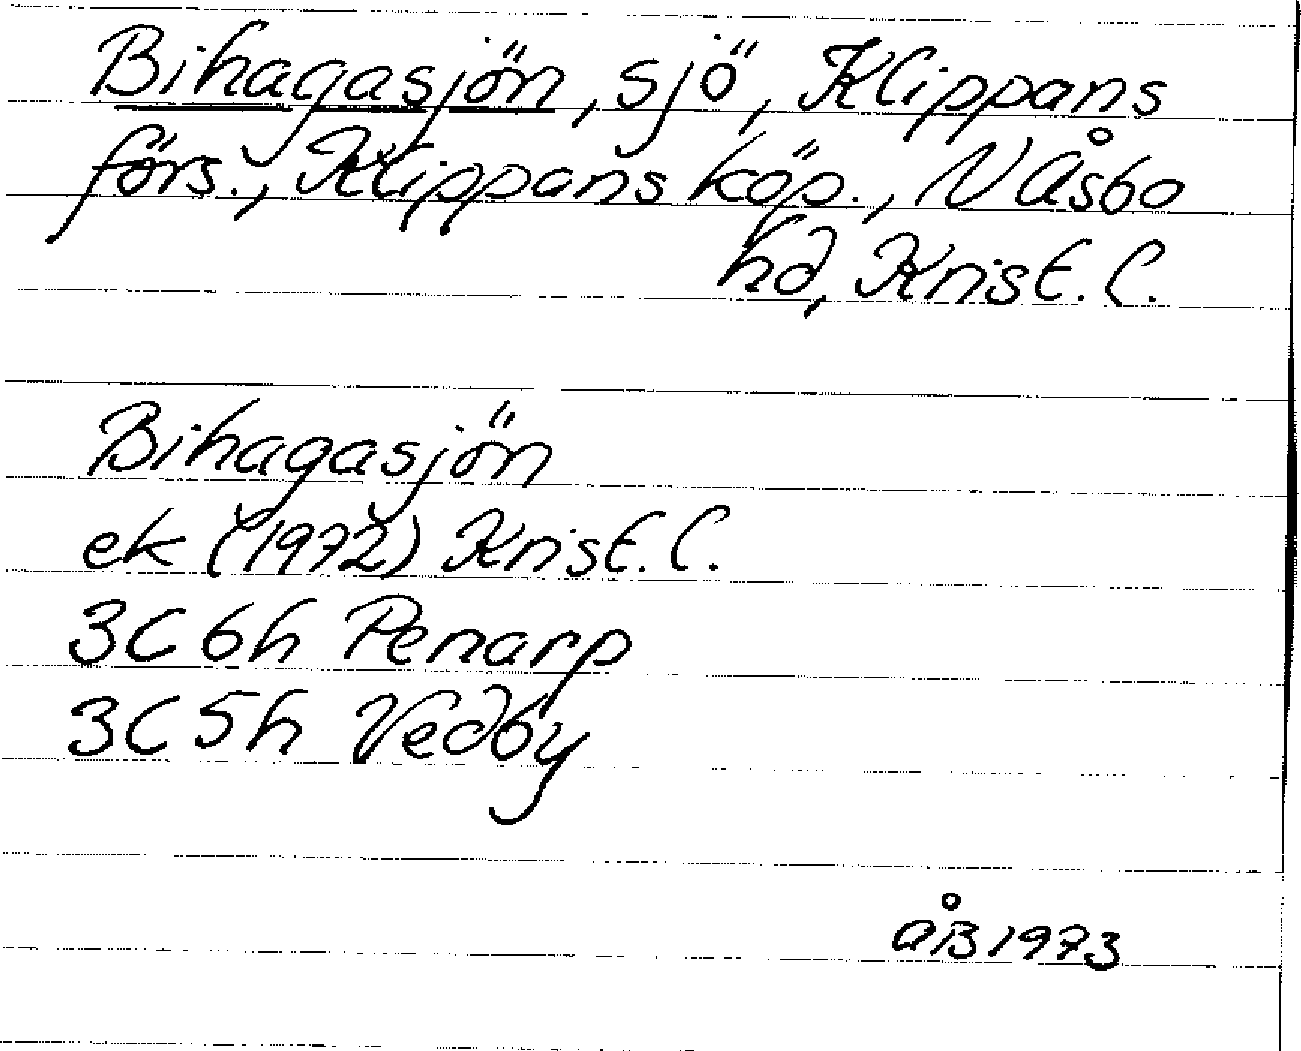 Bihagasjön, sjö, Klippans
förs., Klippans köp., N Åsbo
hd, Krist. l.
Bihagasjön
ek (1972) Krist. l.
3C 6h Penarp
3C 5h Vedby
ÅB 1973